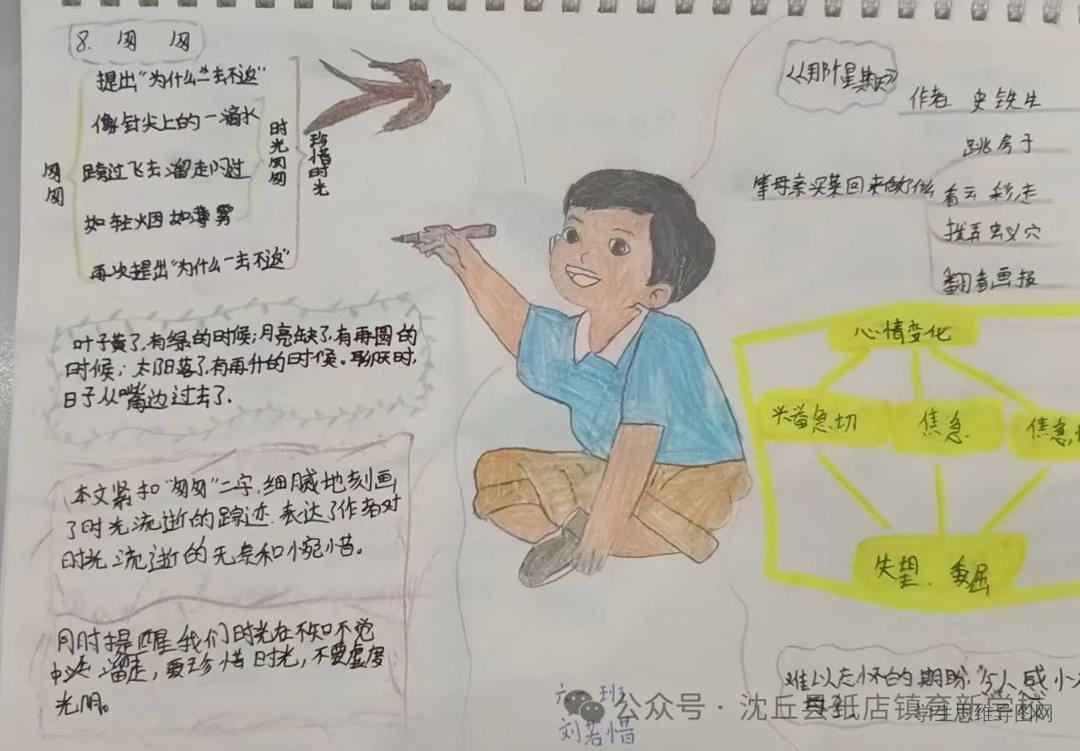 8. 匆 匆
提出“为什么一去不返”
像针尖上的一滴水
匆匆
跨过飞去溜走闪过
如轻烟如薄雾
再次提出“为什么一去不返”
时光匆匆
珍惜时光
叶子黄了,有绿的时候;月亮缺了,有再圆的
时候;太阳落了,有再升的时候。聊厌时,
日子从嘴边过去了.
本文紧扣“匆匆”二字,细腻地刻画
了时光流逝的踪迹,表达了作者对
时光流逝的无奈和惋惜。
同时提醒我们时光在不知不觉
中 溜走,要珍惜时光,不要虚度
光阴。
《那个星期天》
作者 史铁生
等母亲买菜回来做了什么
跳房子
看云彩走
拨弄蚁穴
翻看画报
心情变化
兴奋急切
焦急
焦急
失望、委屈
难以忘怀的期盼,
六 班
刘若惜
公众号·沈丘县纸店镇育新学校
学生思维导图网